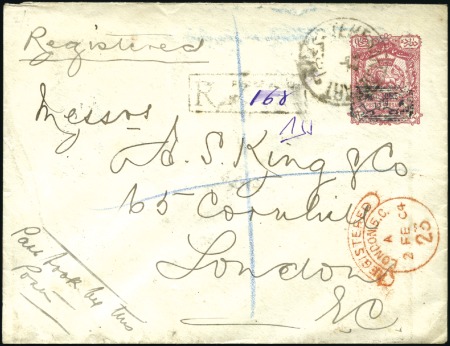 Registered
R
168
Messrs
H. S. King & Co
65 Cornhill
London
E.C
Pass book by this
REGISTERED
LONDON E.C.
A
2 FE 04
23